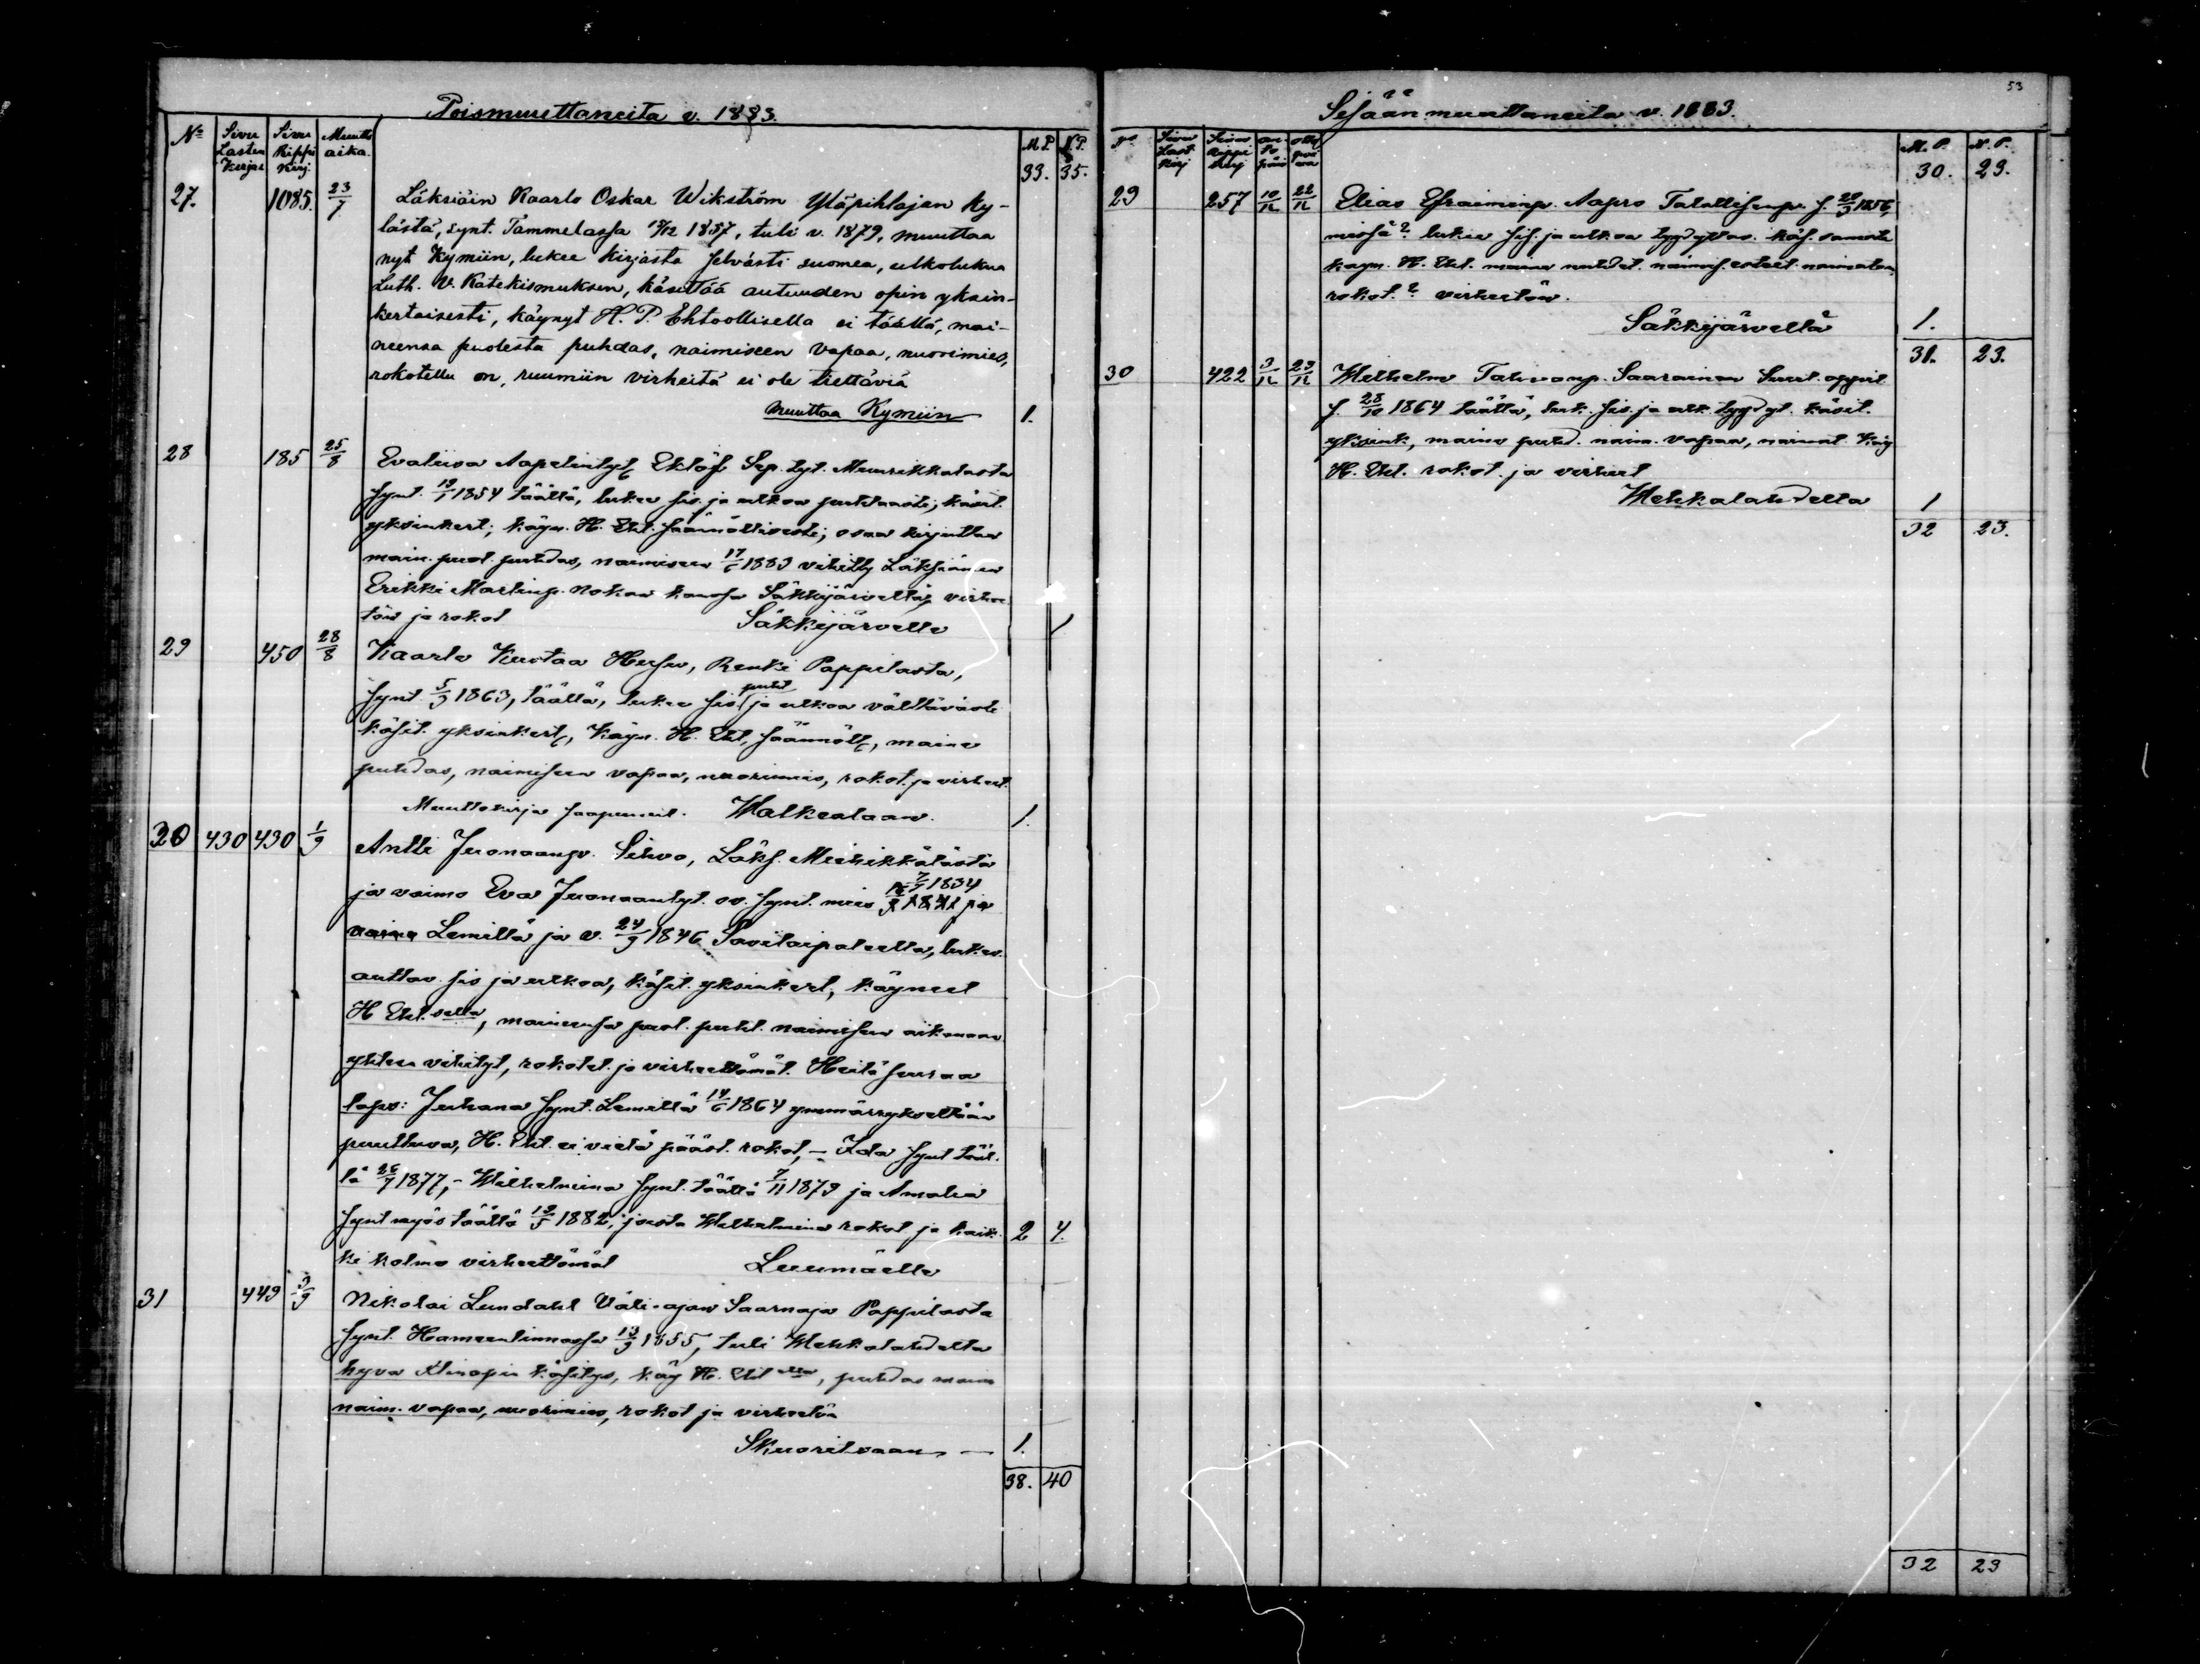 53
Poismuuttaneita v. 1883.
No Sivu Lasten Kirjas Sivu Rippi Kirj. Muutto aika. M.P. N.P.
33. 35.
27. 1085. 23/7 Läksiäin Kaarlo Oskar Wikström Yläpihlajan ky-
lästä, synt. Tammelassa 1857, tuli v. 1879, muuttaa
nyt Kymiin, lukee kirjasta selvästi suomea, ulkolukua
Luth. V. Katekismuksen, käsittää autuuden opin yksin-
kertaisesti, käynyt H. P. Ehtoollisella ei täällä, mai-
neensa puolesta puhdas, naimiseen vapaa, nuorimies,
rokotettu on, ruumiin virheitä ei ole tiettäviä
muuttaa Kymiin 1.
28 185 25/8 Evaliisa Aapelintyt. Eklöf Sep. tyt. Muurikkalasta
synt. 19/1 1854 täällä, lukee sis. ja ulkoa puhtaasti; käsit.
yksinkert.; käyn. H. Eht. säännöllisesti; osaa kirjuttaa
main. puol. puhdas, naimiseen 17/6 1883 vihitty Läksiämen
Erikki Martinp. Nokan kanssa Säkkijärveltä, virhee-
töin ja rokot Säkkijärvelle 1
29 450 28/8 Kaarlo Kustaa Husu, Renki Pappilasta,
synt. 5/3 1863, täällä, lukee sis. puht. ja ulkoa välttäväste
käsit. yksinkert., käyn. H. Eht, säännöll, maine
puhdas, naimiseen vapaa, nuorimies, rokot. ja virheet.
Muuttokirja Walkealaan. 1.
30 430 430 1/9 Antti Juonaanp. Sihvo, Läks. Miehikkälästä
ja vaimo Eva Juonaantyt. os. synt. mies 7/7 1834
Lemillä ja v. 24/9 1846 Savitaipaleella, lukev.
auttav. sis ja ulkoa, käsit. yksinkert, käyneet
H Eht.sella, maineensa puol. puht. naimiseen aikanaan
yhteen vihityt, rokotet. ja virheettömät. Heitä seuraa
laps: Juhana synt. Lemillä 14/6 1864 ymmärrykseltään
puuttuva, H. Eht. ei vielä pääst. rokot, – Ida synt tääl-
lä 25/7 1877, – Wilhelmina synt. täällä 7/11 1879 ja Amalia
synt myös täällä 19/5 1882, joista Wilhelmina rokot ja kaik- 2 4.
ki kolme virheettömät Luumäelle
31 449 3/9 Nikolai Lundahl Väli-ajan Saarnaja Pappilasta
synt. Hämeenlinnassa 13/3 1855, tuli Wehkalahdelta
hyvä Xtinopin käsitys, käy H. Eht.lla, puhdas main
naim. vapaa, nuorimies, rokot ja virheetön
1.
38. 40
Sisään muuttaneita v. 1883.
No Sivu Last. Kirj Sivu Rippi Kirj M. P. N. P.
30. 23.
29 257 10/12 22/12 Elias Efraiminp. Aapro s. 1856,
missä? lukee sis. ja ulkoa
käyn. H. Eht. maine
rokot.? virheetön.
Säkkijärveltä 1.
31. 23.
30 422 3/12 23/12 Wilhelm Tahvonp. Saarainen
s. 28/10 1864 täällä, luk. sis. ja ulk. tyyd yt. käsit.
yksink, maine puhd. naim. vapaa, käy
H. Eht. rokot. ja virheet
Wehkalahdelta 1
32 23.
32 23